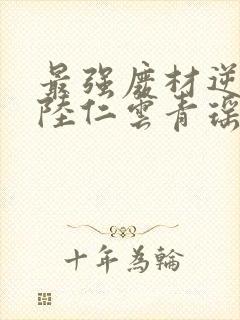 最强废材逆
陸仁雲青瑶
十年為輪